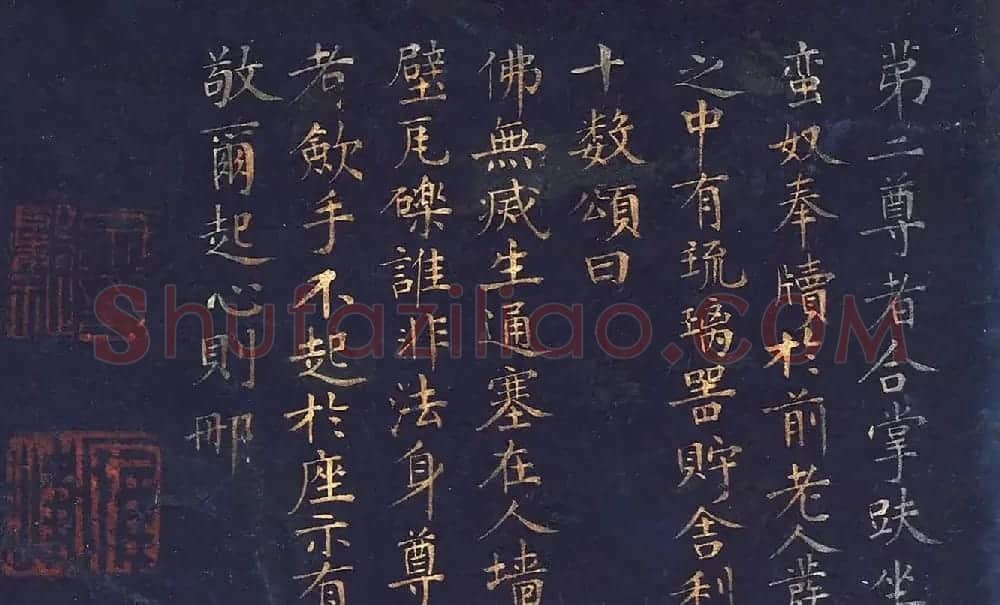 第二尊者合掌趺坐
蛮奴奉牘於前老人發
之中有琉璃器貯舍利
十数頌曰
佛無滅生通塞在人墙
壁瓦礫誰非法身尊
者歛手不起於座示有
敬爾起心則那
Shufaziliao.COM